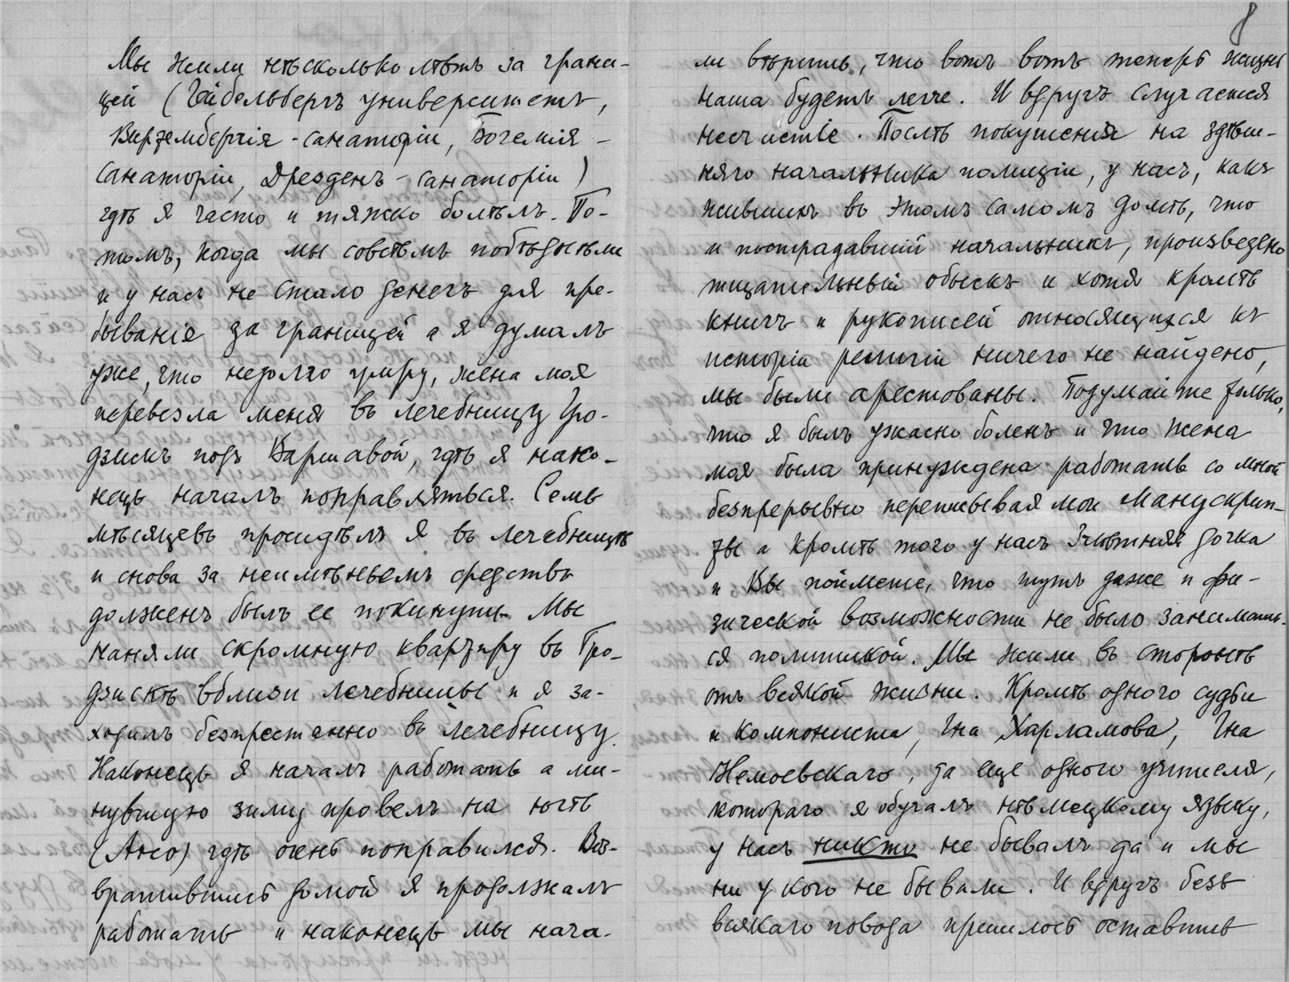 Мы жили нѣсколько лѣтъ за грани-
цей (Гейдельбергъ университетъ,
Виртембергія - санаторіи, Богемія -
санаторіи, Дрезденъ - санаторіи)
гдѣ я часто и тяжко болѣлъ. По-
томъ, когда мы совсѣмъ побѣднѣли
и у насъ не стало денегъ для пре-
быванія за границей а я думалъ
уже, что недолго умру, жена моя
перевезла меня въ лечебницу Гро-
дзискъ подъ Варшавой, гдѣ я нако-
нецъ началъ поправляться. Семь
мѣсяцевъ просидѣлъ я въ лечебницѣ
и снова за неимѣньемъ средствъ
долженъ былъ ее покинуть. Мы
наняли скромную квартиру въ Гро-
дзискѣ вблизи лечебницы и я за-
ходилъ безпрестанно въ лечебницу.
Наконецъ я началъ работать а ми-
нувшую зиму провелъ на югѣ
гдѣ очень поправился. Воз-
вратившись домой я продолжалъ
работать и наконецъ мы нача-
8
ли вѣрить, что вотъ вотъ теперь жизнь
наша будетъ легче. И вдругъ случается
несчастіе. Послѣ покушенія на здѣш-
няго начальника полиціи, у насъ, какъ
жившихъ въ этомъ самомъ домѣ, что
и пострадавшій начальникъ, произведенъ
тщательный обыскъ и хотя кромѣ
книгъ и рукописей относящихся къ
исторіи религіи ничего не найдено,
мы были арестованы. Подумайте только,
что я былъ ужасно боленъ и что жена
моя была принуждена работать со мной
безпрерывно переписывая мои манускрип-
ты а кромѣ того у насъ лѣтняя дочка
и Вы поймете, что тутъ даже и фи-
зической возможности не было занимать-
ся политикой. Мы жили въ сторонѣ
отъ всякой жизни. Кромѣ одного судьи
и композитора, Гна Харламова, Гна
Немоевскаго, да еще одного учителя,
котораго я обучалъ нѣмецкому языку,
у насъ никто не бывалъ да и мы
ни у кого не бывали. И вдругъ безъ
всякаго повода пришлось оставить